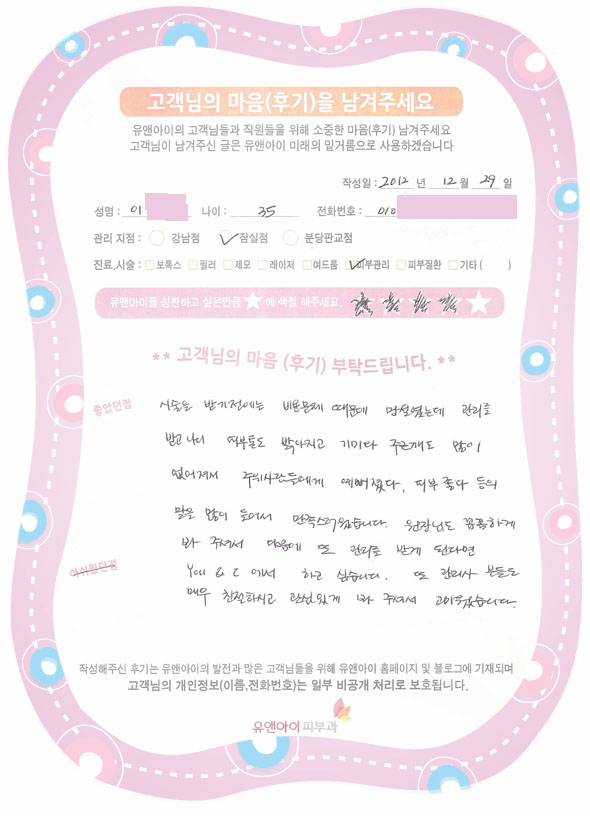 고객님의 마음(후기)을 남겨주세요
유앤아이의 고객님들과 직원들을 위해 소중한 마음(후기) 남겨주세요
고객님이 남겨주신 글은 유앤아이 미래의 밑거름으로 사용하겠습니다
작성일 : 2012 년 12 월 29 일
성명 : 이 나이 : 35 전화번호 : 010
관리 지점 : 강남점 잠실점 분당판교점
진료,시술 : 보톡스 필러 제모 레이저 여드름 피부관리 피부질환 기타 ( )
유앤아이를 칭찬하고 싶은만큼 ★에 색칠 해주세요. ★★★★★
** 고객님의 마음 (후기) 부탁드립니다. **
좋았던점
시술을 받기전에는 비용문제 때문에 망설였는데 관리를
받고 나니 피부톤도 밝아지고 기미나 주근깨도 많이
없어져서 주위사람들에게 예뻐졌다, 피부 좋다 등의
말을 많이 들어서 만족스러웠습니다. 원장님도 꼼꼼하게
봐 주셔서 다음에 또 관리를 받게 된다면
아쉬웠던점
You & I 에서 하고 싶습니다. 또 관리사 분들도
매우 친절하시고 관심있게 봐 주셔서 고마웠습니다.
작성해주신 후기는 유앤아이의 발전과 많은 고객님들을 위해 유앤아이 홈페이지 및 블로그에 기재되며
고객님의 개인정보(이름,전화번호)는 일부 비공개 처리로 보호됩니다.
유앤아이피부과